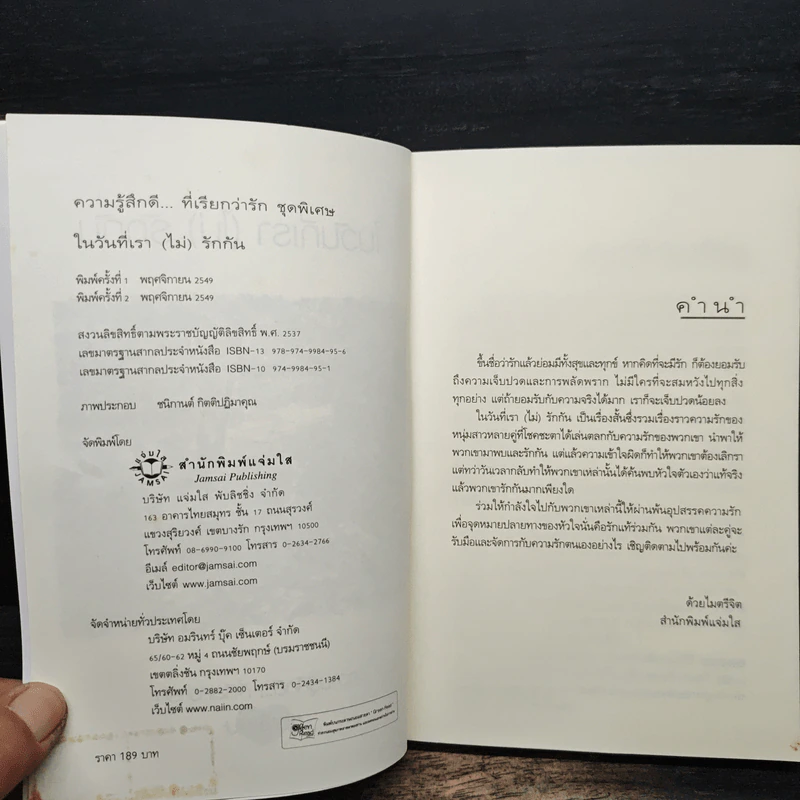 ความรู้สึกดี... ที่เรียกว่ารัก ชุดพิเศษ
ในวันที่เรา (ไม่) รักกัน
พิมพ์ครั้งที่ 1 พฤศจิกายน 2549
พิมพ์ครั้งที่ 2 พฤศจิกายน 2549
สงวนลิขสิทธิ์ตามพระราชบัญญัติลิขสิทธิ์ พ.ศ. 2537
เลขมาตรฐานสากลประจำหนังสือ ISBN-13 978-974-9984-95-6
เลขมาตรฐานสากลประจำหนังสือ ISBN-10 974-9984-95-1
ภาพประกอบ ชนิกานต์ กิตติปฏิมาคุณ
จัดพิมพ์โดย
แจ่มใส
JAMSAI
สำนักพิมพ์แจ่มใส
Jamsai Publishing
บริษัท แจ่มใส พับลิชชิ่ง จำกัด
163 อาคารไทยสมุทร ชั้น 17 ถนนสุรวงศ์
แขวงสุริยวงศ์ เขตบางรัก กรุงเทพฯ 10500
โทรศัพท์ 08-6990-9100 โทรสาร 0-2634-2766
อีเมล์ editor@jamsai.com
เว็บไซต์ www.jamsai.com
จัดจำหน่ายทั่วประเทศโดย
บริษัท อมรินทร์ บุ๊ค เซ็นเตอร์ จำกัด
65/60-62 หมู่ 4 ถนนชัยพฤกษ์ (บรมราชชนนี)
เขตตลิ่งชัน กรุงเทพฯ 10170
โทรศัพท์ 0-2882-2000 โทรสาร 0-2434-1384
เว็บไซต์ www.naiin.com
ราคา 189 บาท
คำนำ
ขึ้นชื่อว่ารักแล้วย่อมมีทั้งสุขและทุกข์ หากคิดที่จะมีรัก ก็ต้องยอมรับ
ถึงความเจ็บปวดและการพลัดพราก ไม่มีใครที่จะสมหวังไปทุกสิ่ง
ทุกอย่าง แต่ถ้ายอมรับกับความจริงได้มาก เราก็จะเจ็บปวดน้อยลง
ในวันที่เรา (ไม่) รักกัน เป็นเรื่องสั้นซึ่งรวมเรื่องราวความรักของ
หนุ่มสาวหลายคู่ที่โชคชะตาได้เล่นตลกกับความรักของพวกเขา นำพาให้
พวกเขามาพบและรักกัน แต่แล้วความเข้าใจผิดก็ทำให้พวกเขาต้องเลิกรา
แต่ทว่าวันเวลากลับทำให้พวกเขาเหล่านั้นได้ค้นพบหัวใจตัวเองว่าแท้จริง
แล้วพวกเขารักกันมากเพียงใด
ร่วมให้กำลังใจไปกับพวกเขาเหล่านี้ให้ผ่านพ้นอุปสรรคความรัก
เพื่อจุดหมายปลายทางของหัวใจนั่นคือรักแท้ร่วมกัน พวกเขาแต่ละคู่จะ
รับมือและจัดการกับความรักตนเองอย่างไร เชิญติดตามไปพร้อมกันค่ะ
ด้วยไมตรีจิต
สำนักพิมพ์แจ่มใส